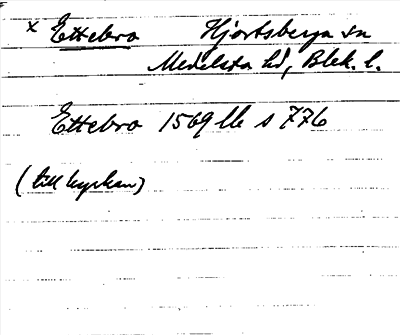 x Ettebro Hjortsberga sn
Medelsta hd, Blek. l.
Ettebro 1569 lb s 776
(till kyrkan)